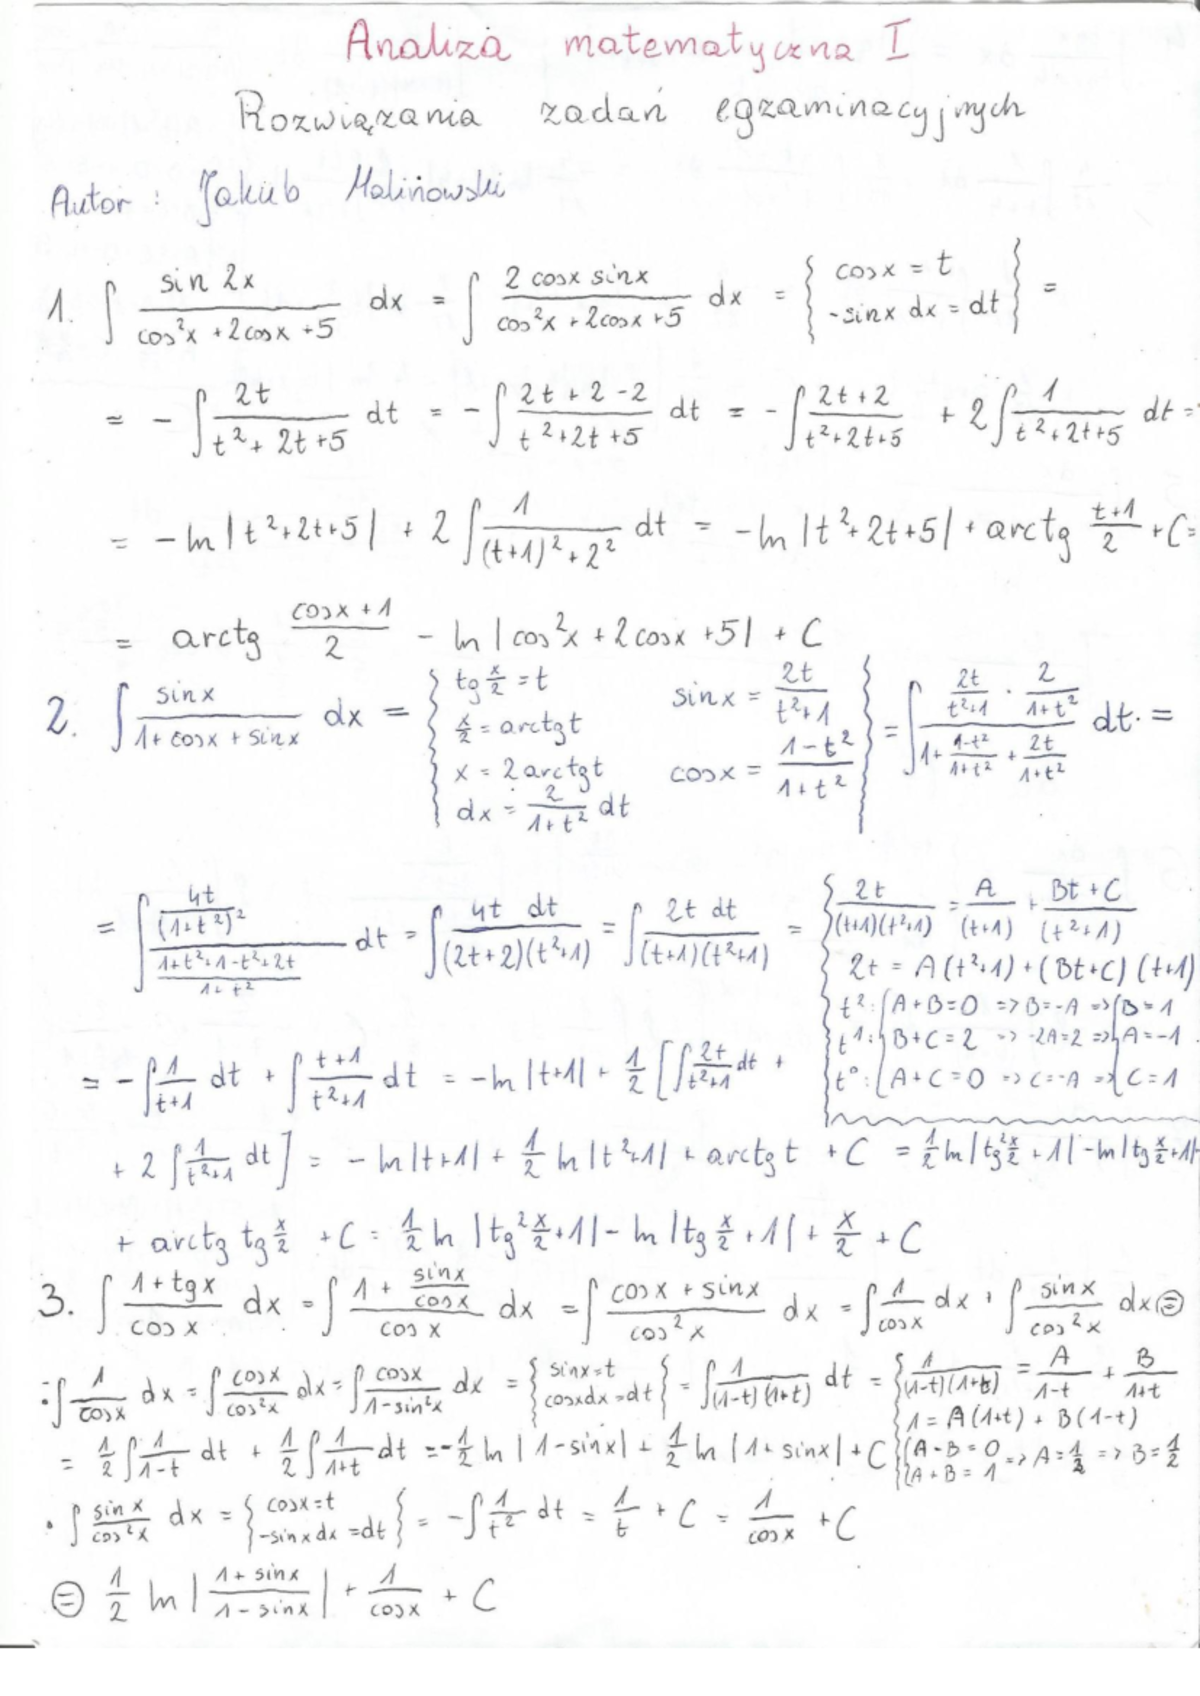 Analiza matematyczna I
Rozwiązania zadań egzaminacyjnych
Autor : Jakub Malinowski
1. ∫ sin 2x / (cos²x + 2cosx + 5) dx = ∫ 2 cosx sinx / (cos²x + 2cosx + 5) dx = { cosx = t ; -sinx dx = dt } =
= - ∫ 2t / (t² + 2t + 5) dt = - ∫ (2t + 2 - 2) / (t² + 2t + 5) dt = - ∫ (2t + 2) / (t² + 2t + 5) + 2 ∫ 1 / (t² + 2t + 5) dt =
= - ln |t² + 2t + 5| + 2 ∫ 1 / ((t+1)² + 2²) dt = - ln |t² + 2t + 5| + arctg (t+1)/2 + C =
= arctg (cosx + 1)/2 - ln |cos²x + 2cosx + 5| + C
2. ∫ sinx / (1 + cosx + sinx) dx = { tg x/2 = t ; x/2 = arctgt ; x = 2arctgt ; dx = 2/(1+t²) dt ; sinx = 2t/(t²+1) ; cosx = (1-t²)/(1+t²) } = ∫ (2t/(t²+1) · 2/(1+t²)) / (1 + (1-t²)/(1+t²) + 2t/(1+t²)) dt =
= ∫ (4t/(1+t²)²) / ((1+t²+1-t²+2t)/(1+t²)) dt = ∫ 4t dt / ((2t+2)(t²+1)) = ∫ 2t dt / ((t+1)(t²+1)) = { 2t/((t+1)(t²+1)) = A/(t+1) + (Bt+C)/(t²+1)
2t = A(t²+1) + (Bt+C)(t+1)
t²: { A+B=0 => B=-A => { B=1
t¹: { B+C=2 => -2A=2 => { A=-1
t⁰: { A+C=0 => C=-A => { C=1
= - ∫ 1/(t+1) dt + ∫ (t+1)/(t²+1) dt = - ln|t+1| + 1/2 [ ∫ 2t/(t²+1) dt +
+ 2 ∫ 1/(t²+1) dt ] = - ln|t+1| + 1/2 ln|t²+1| + arctg t + C = 1/2 ln|tg² x/2 + 1| - ln|tg x/2 + 1| +
+ arctg tg x/2 + C = 1/2 ln |tg² x/2 + 1| - ln |tg x/2 + 1| + x/2 + C
3. ∫ (1 + tgx)/cosx dx = ∫ (1 + sinx/cosx)/cosx dx = ∫ (cosx + sinx)/cos²x dx = ∫ 1/cosx dx + ∫ sinx/cos²x dx ⊜
· ∫ 1/cosx dx = ∫ cosx/cos²x dx = ∫ cosx/(1-sin²x) dx = { sinx=t ; cosxdx=dt } = ∫ 1/((1-t)(1+t)) dt = { 1/((1-t)(1+t)) = A/(1-t) + B/(1+t)
1 = A(1+t) + B(1-t)
= 1/2 ∫ 1/(1-t) dt + 1/2 ∫ 1/(1+t) dt = - 1/2 ln |1-sinx| + 1/2 ln |1+sinx| + C { A-B=0 ; A+B=1 => A=1/2 => B=1/2
· ∫ sinx/cos²x dx = { cosx=t ; -sinxdx=dt } = - ∫ 1/t² dt = 1/t + C = 1/cosx + C
⊜ 1/2 ln |(1+sinx)/(1-sinx)| + 1/cosx + C